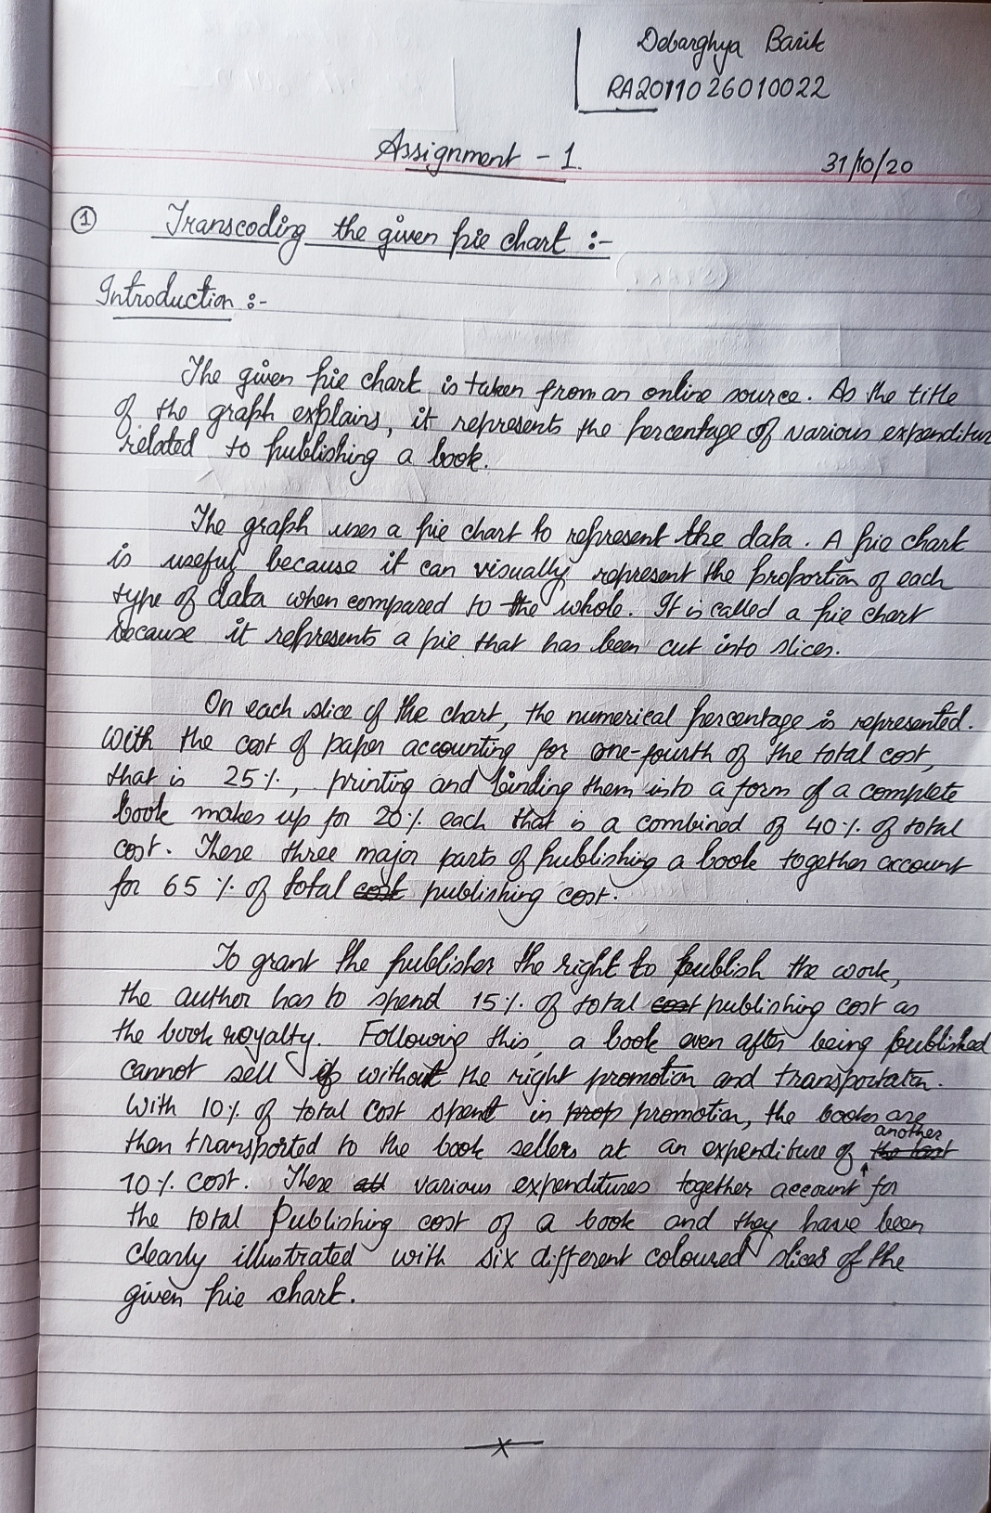 Debarghya Barik
RA2011026010022
Assignment - 1.
31/10/20
① Transcoding the given pie chart :-
Introduction :-
The given pie chart is taken from an online source. As the title
of the graph explains, it represents the percentage of various expenditur
related to publishing a book.
The graph uses a pie chart to represent the data. A pie chart
is useful because it can visually represent the proportion of each
type of data when compared to the whole. It is called a pie chart
because it represents a pie that has been cut into slices.
On each slice of the chart, the numerical percentage is represented.
With the cost of paper accounting for one-fourth of the total cost,
that is 25%, printing and binding them into a form of a complete
book makes up for 20% each that is a combined of 40% of total
cost. These three major parts of publishing a book together account
for 65 % of total cost publishing cost.
To grant the publisher the right to publish the work,
the author has to spend 15% of total cost publishing cost as
the book royalty. Following this, a book even after being published
cannot sell if without the right promotion and transportaton.
With 10% of total cost spent in prop promotion, the books are
another
then transported to the book sellers at an expenditure of the last
10% cost. These all various expenditures together account for
the total Publishing cost of a book and they have been
clearly illustrated with six different coloured slices of the
given pie chart.
x